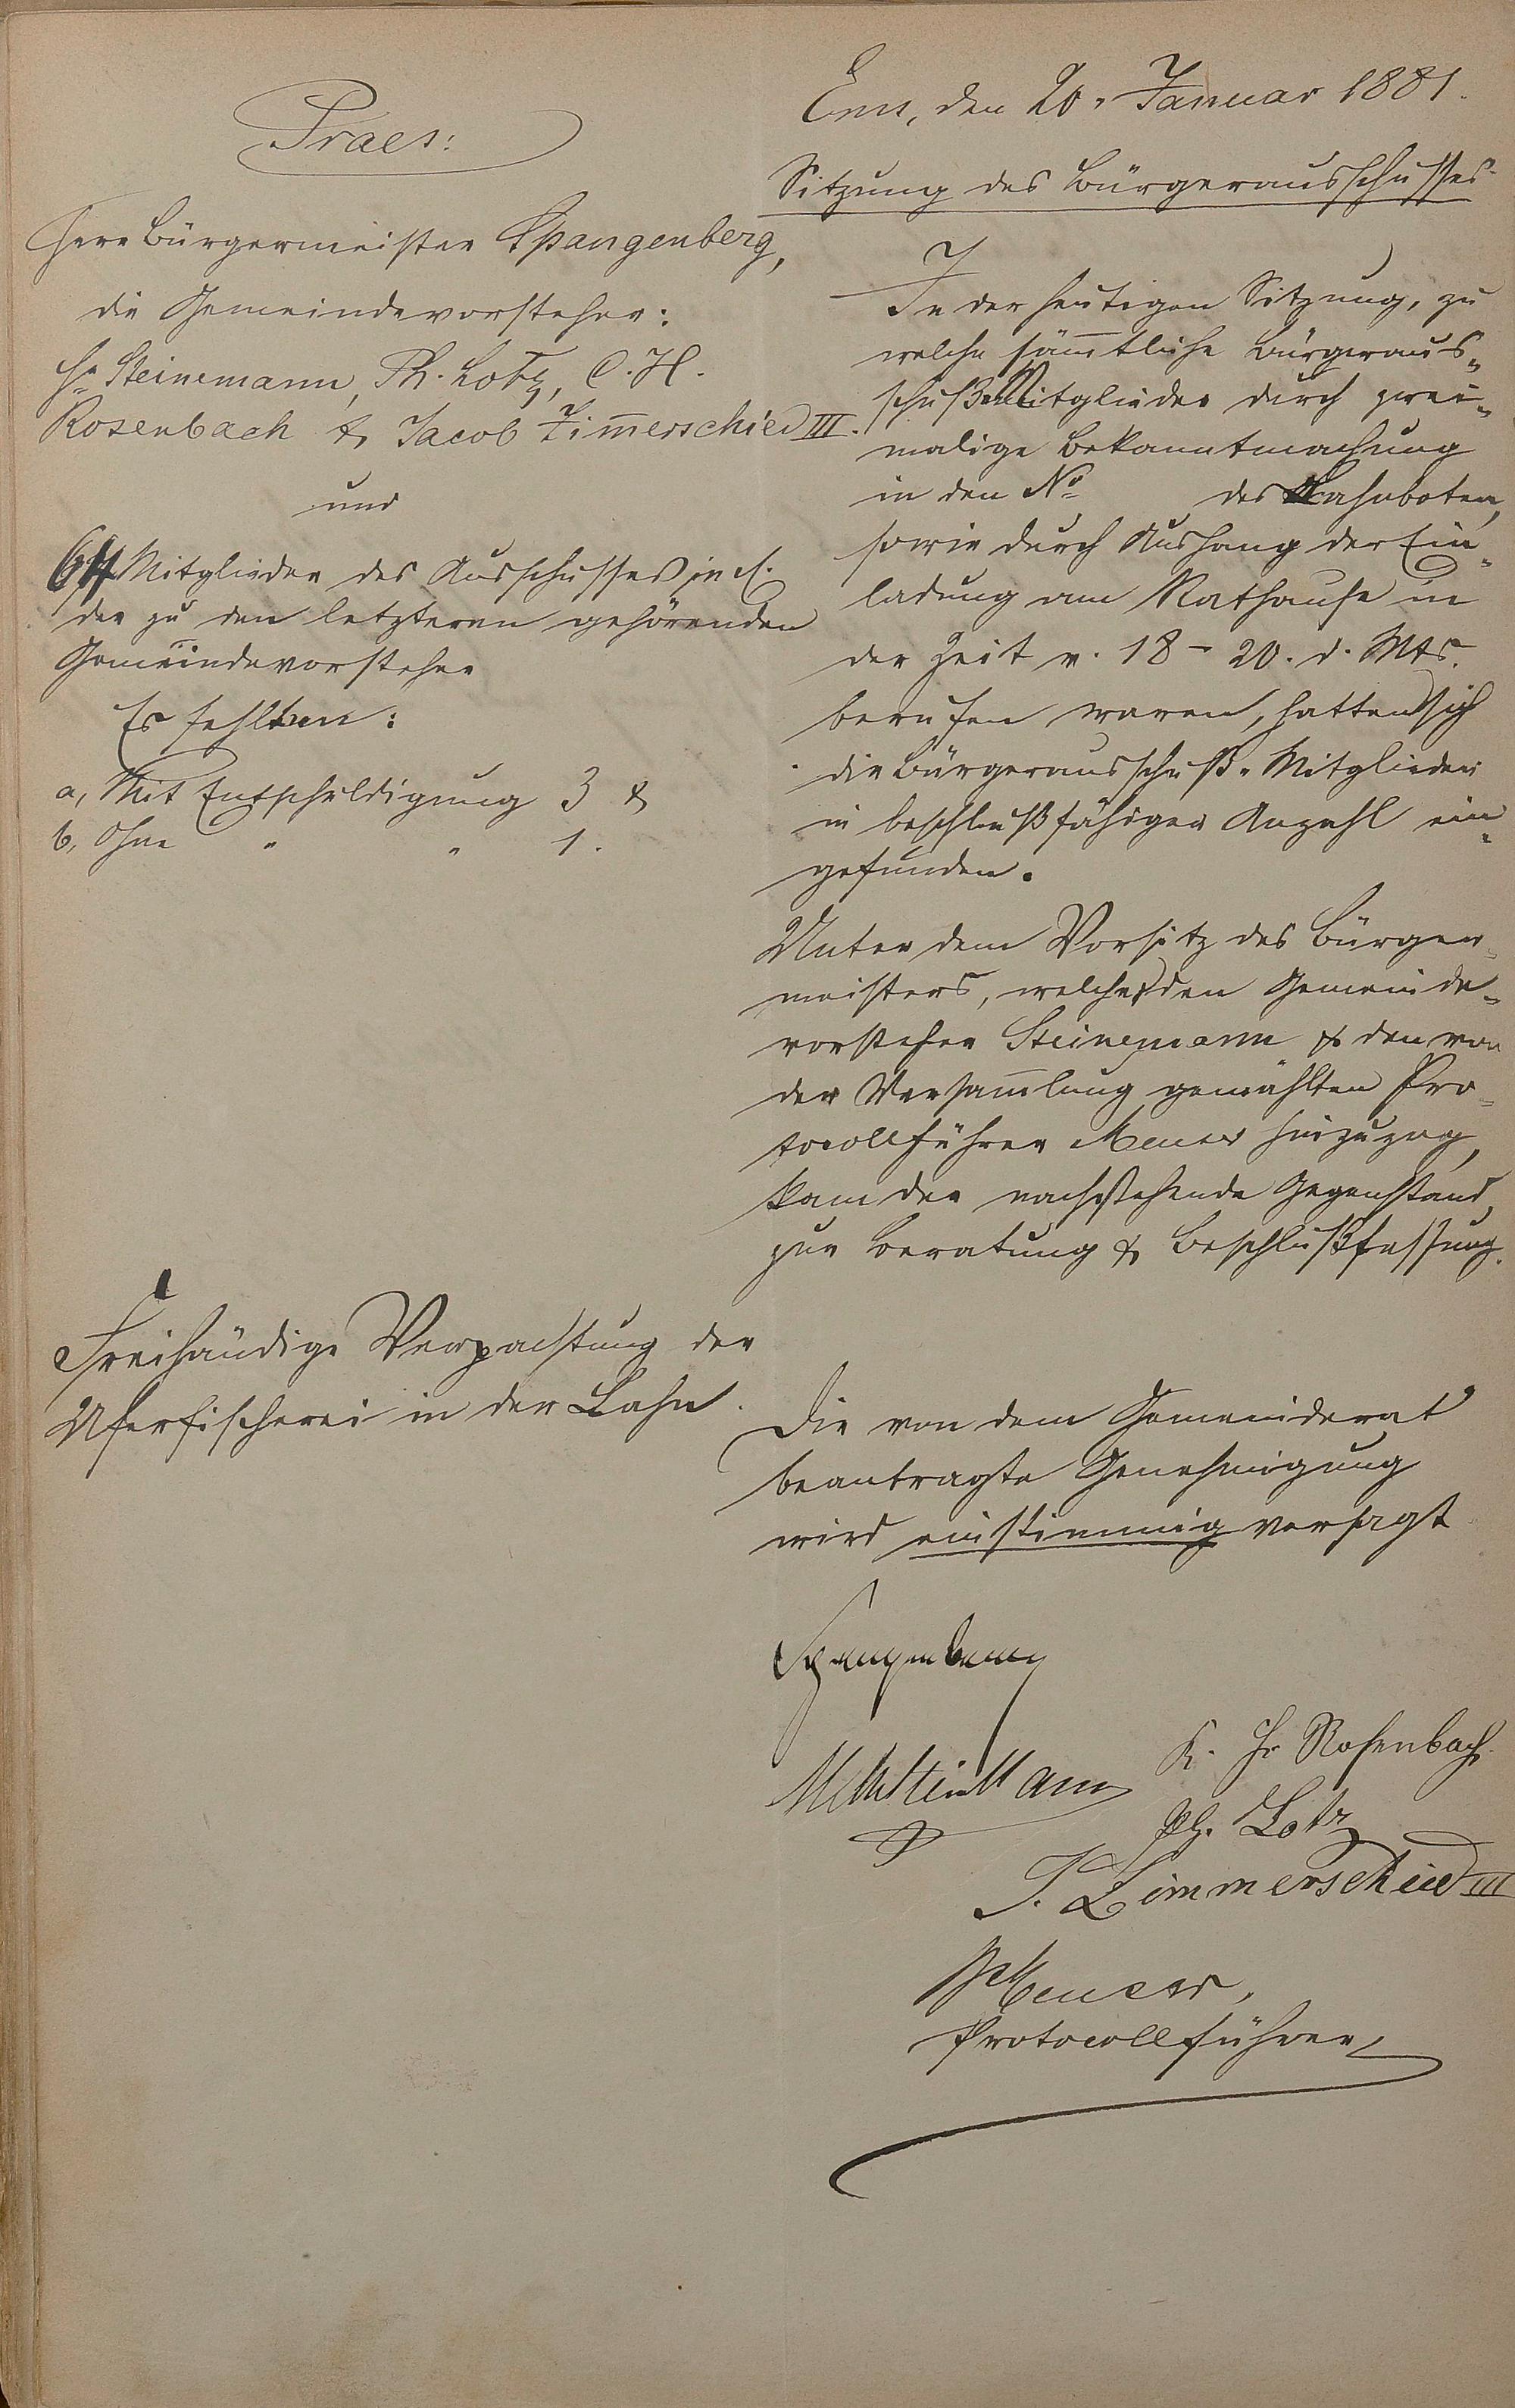 Praes:
Herr Bürgermeister Spangenberg,
die Gemeindevorsteher:
Hr. Steinemann, Ph. Lotz, C. H.
Rosenbach & Jacob Zim̅erschied III.
und
64 Mitglieder des Ausschusses incl.
der zu den letzteren gehörenden
Gemeindevorsteher
Es fehlten:
a, Mit Entschuldigung 3 &
b, Ohne " " 1.
Ems, den 20. Januar 1881.
Sitzung des Bürgerausschusses
In der heutigen Sitzung, zu
welche säm̅tliche Bürgeraus-
schuß-Mitglieder durch zwei-
malige Bekanntmachung
in den No des Lahnboten,
sowie durch Aushang der Ein-
ladung am Rathause in
der Zeit v. 18 - 20. d. Mts.
berufen waren, hatten sich
die Bürgerausschuß-Mitglieder
in beschlußfähiger Anzahl ein-
gefunden.
Unter dem Vorsitz des Bürger-
meisters, welcher den Gemeinde-
vorsteher Steinemann & den von
der Versam̅lung gewählten Pro-
tocollführer Meuser hinzuzog,
kam der nachstehende Gegenstand,
zur Beratung & Beschlußfassung.
Freihändige Verpachtung der
Uferfischerei in der Lahn.
Die von dem Gemeinderat
beantragte Genehmigung
wird einstimmig versagt
Spangenberg
K. Hr Rosenbach.
Ph. Lotz
J. Zimmerschied III
Meuser,
Protocollführer